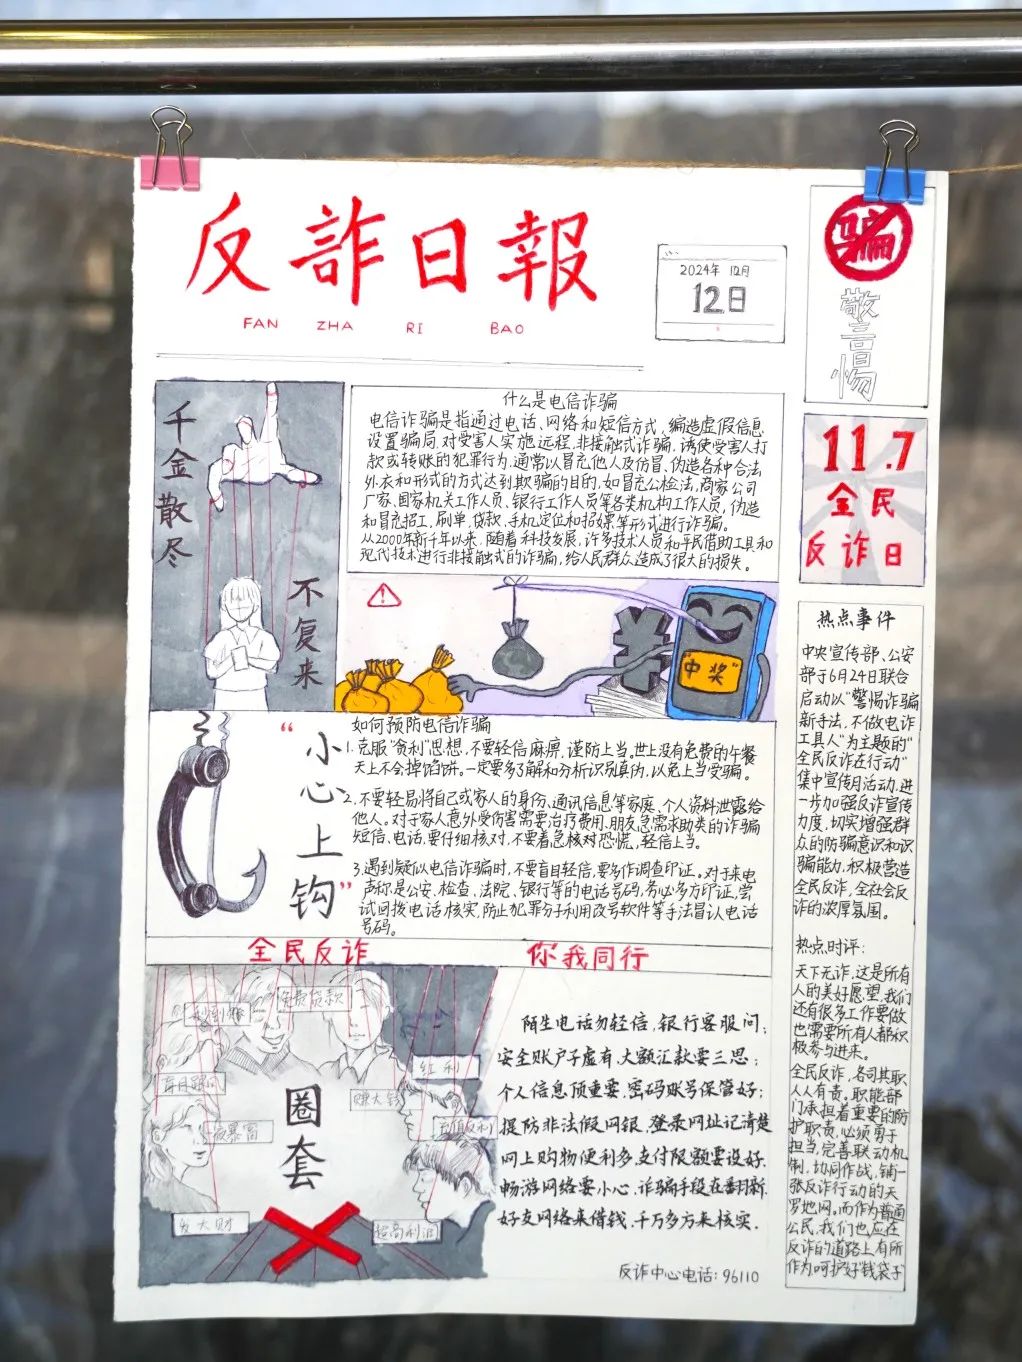 反詐日報
FAN ZHA RI BAO
2024年 12月
12日
骗
警惕
千金散尽
不复来
什么是电信诈骗
电信诈骗是指通过电话、网络和短信方式,编造虚假信息
设置骗局,对受害人实施远程,非接触式诈骗,诱使受害人打
款或转账的犯罪行为,通常以冒充他人及仿冒、伪造各种合法
外衣和形式的方式达到欺骗的目的,如冒充公检法,商家公司
厂家,国家机关工作人员、银行工作人员等各类机构工作人员,伪造
和冒充招工,刷单,贷款、手机定位和招嫖等形式进行诈骗。
从2000年新千年以来,随着科技发展,许多技术人员和平民借助工具和
现代技术进行非接触式的诈骗,给人民群众造成了很大的损失。
11.7
全民
反诈日
“中奖”
“小心上钩”
如何预防电信诈骗
1.克服“贪利”思想,不要轻信麻痹,谨防上当。世上没有免费的午餐
天上不会掉馅饼。一定要多了解和分析识别真伪,以免上当受骗。
2.不要轻易将自己或家人的身份、通讯信息等家庭、个人资料泄露给
他人。对于家人意外受伤害需要治疗费用、朋友急需求助类的诈骗
短信、电话,要仔细核对,不要着急核对恐慌,轻信上当。
3.遇到疑似电信诈骗时,不要盲目轻信,要多作调查印证。对于来电
声称是公安、检查、法院、银行等的电话号码,务必多方印证,尝
试回拨电话核实,防止犯罪分子利用改号软件等手法冒认电话
号码。
全民反诈 你我同行
免费贷款
红利
赚大钱
发大财
超高利润
圈套
陌生电话勿轻信,银行客服问;
安全账户子虚有,大额汇款要三思;
个人信息顶重要,密码账号保管好;
提防非法假网银,登录网址记清楚
网上购物便利多,支付限额要设好,
畅游网络要小心,诈骗手段在翻新,
好友网络来借钱,千万多方来核实.
反诈中心电话:96110
热点事件
中央宣传部、公安
部于6月24日联合
启动以“警惕诈骗
新手法,不做电诈
工具人”为主题的“
全民反诈在行动”
集中宣传月活动,进
一步加强反诈宣传
力度,切实增强群
众的防骗意识和识
骗能力,积极营造
全民反诈,全社会反
诈的浓厚氛围。
热点时评:
天下无诈,这是所有
人的美好愿望,我们
还有很多工作要做
也需要所有人都积
极参与进来。
全民反诈,各司其职
人人有责。职能部
门承担着重要的防
护职责,必须勇于
担当,完善联动机
制,协同作战,铺一
张反诈行动的天
罗地网。而作为普通
公民,我们也应在
反诈的道路上有所
作为呵护好“钱袋子”